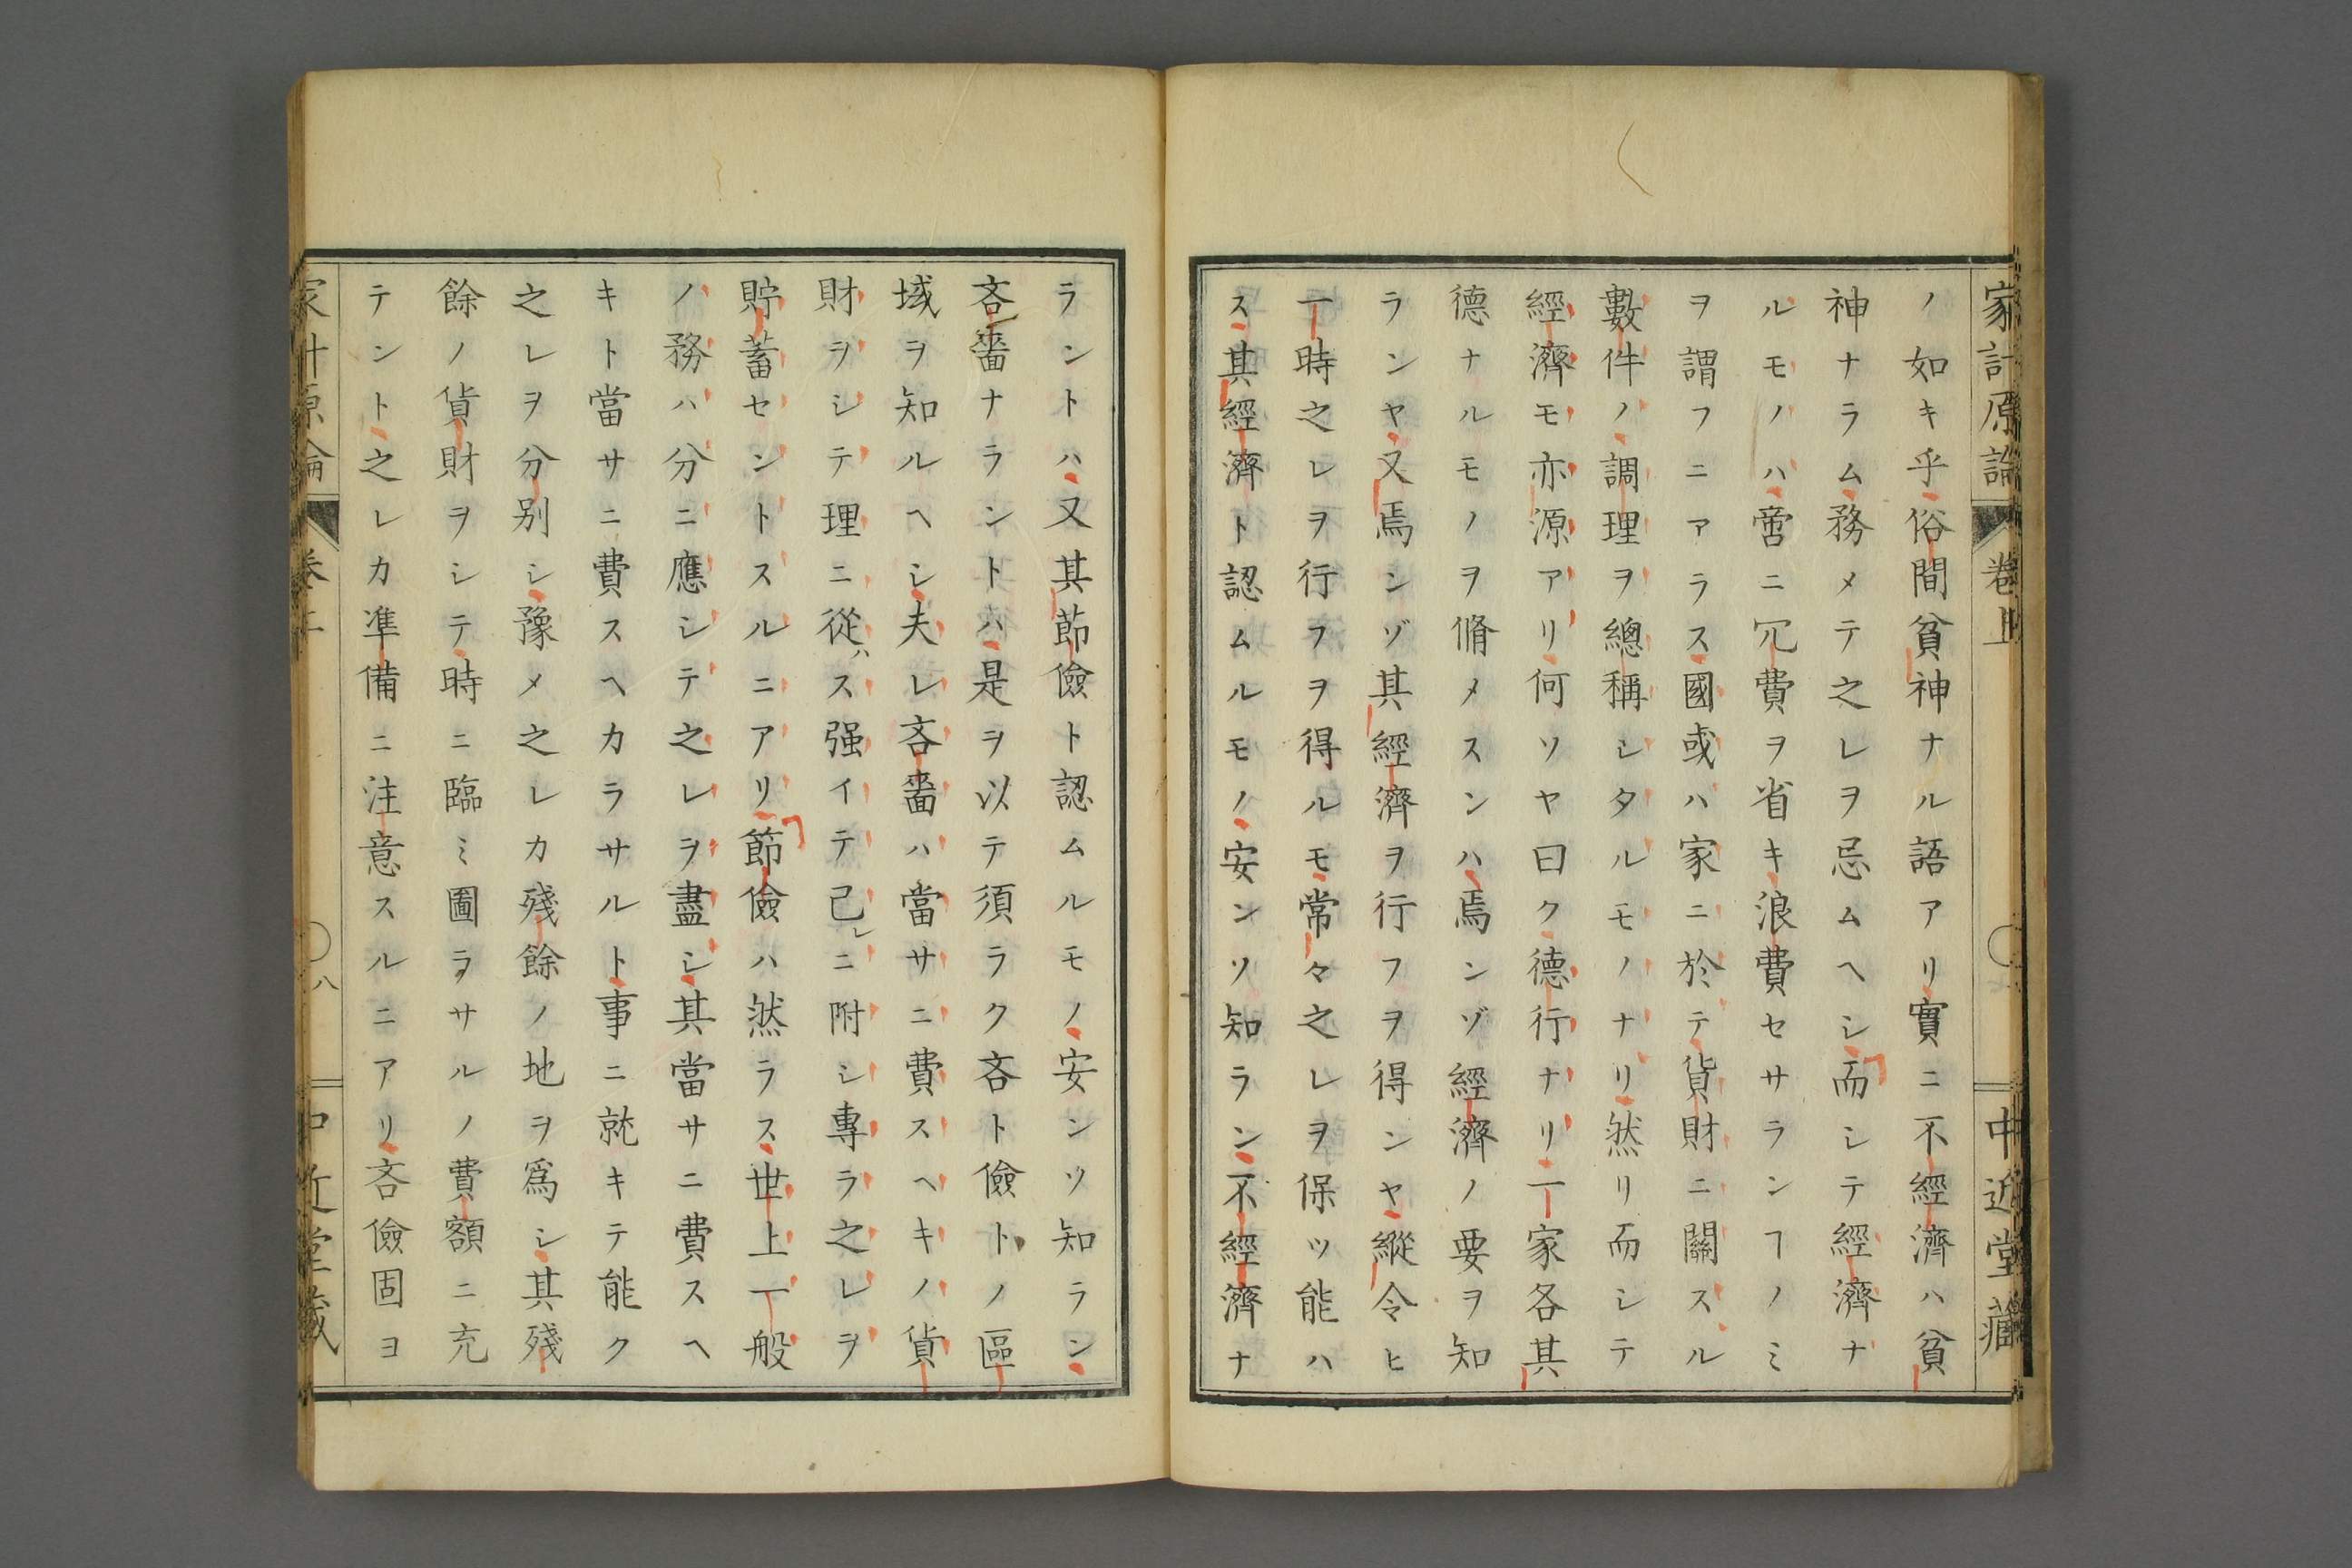 家計原論 卷上 中近堂藏
ノ如キ乎俗間貧神ナル語アリ實ニ不經濟ハ貧
神ナラム務メテ之レヲ忌ムヘシ而シテ經濟ナ
ルモノハ啻ニ冗費ヲ省キ浪費セサランヿノミ
ヲ謂フニアラス國或ハ家ニ於テ貨財ニ關スル
數件ノ調理ヲ總稱シタルモノナリ然リ而シテ
經濟モ亦源アリ何ソヤ曰ク德行ナリ一家各其
德ナルモノヲ脩メスンハ焉ンゾ經濟ノ要ヲ知
ランヤ又焉ンゾ其經濟ヲ行フヲ得ンヤ縱令ヒ
一時之レヲ行フヲ得ルモ常々之レヲ保ツ能ハ
ス其經濟ト認ムルモノ安ンソ知ラン不經濟ナ
ラントハ又其節儉ト認ムルモノ安ンソ知ラン
吝嗇ナラントハ是ヲ以テ須ラク吝ト儉トノ區
域ヲ知ルヘシ夫レ吝嗇ハ當サニ費スヘキノ貨
財ヲシテ理ニ從ハス强イテ己レニ附シ專ラ之レヲ
貯蓄セントスルニアリ節儉ハ然ラス世上一般
ノ務ハ分ニ應シテ之レヲ盡シ其當サニ費スヘ
キト當サニ費スヘカラサルト事ニ就キテ能ク
之レヲ分別シ豫メ之レカ殘餘ノ地ヲ爲シ其殘
餘ノ貨財ヲシテ時ニ臨ミ圖ラサルノ費額ニ充
テント之レカ準備ニ注意スルニアリ吝儉固ヨ
家計原論 卷上 八 中近堂藏